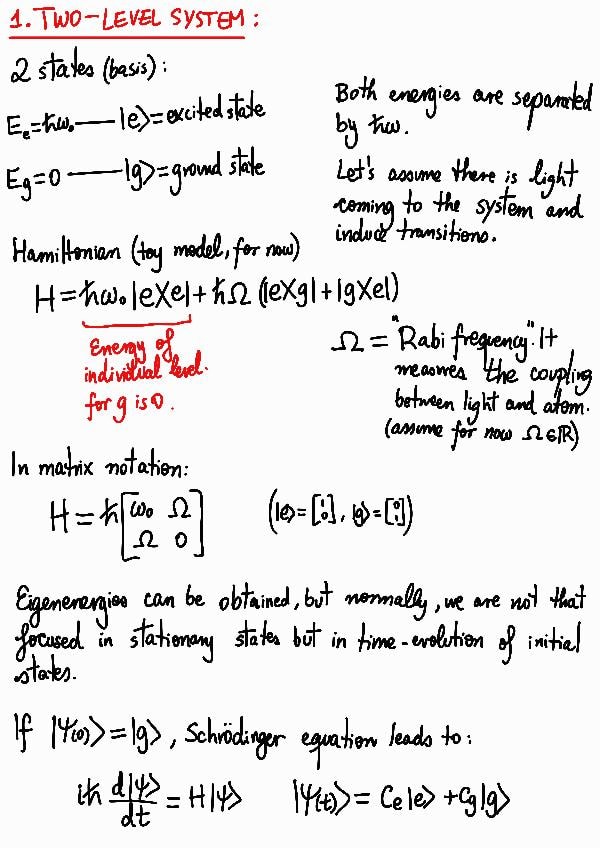 1. TWO-LEVEL SYSTEM:
2 states (basis):
Eₑ=ħω₀ —— |e⟩=excited state
E_g=0 —— |g⟩=ground state
Both energies are separated
by ħω.
Let's assume there is light
coming to the system and
induce transitions.
Hamiltonian (toy model, for now)
H=ħω₀|e⟩⟨e|+ħΩ(|e⟩⟨g|+|g⟩⟨e|)
Energy of
individual level.
for g is 0.
Ω = "Rabi frequency". It
measures the coupling
between light and atom.
(assume for now Ω∈ℝ)
In matrix notation:
H=ħ[ω₀ Ω
Ω 0]
(|e⟩=[1 0], |g⟩=[0 1])
Eigenenergies can be obtained, but normally, we are not that
focused in stationary states but in time-evolution of initial
states.
If |Ψ(0)⟩=|g⟩, Schrödinger equation leads to:
iħ d|Ψ⟩/dt = H|Ψ⟩ |Ψ(t)⟩ = Cₑ|e⟩ + C_g|g⟩